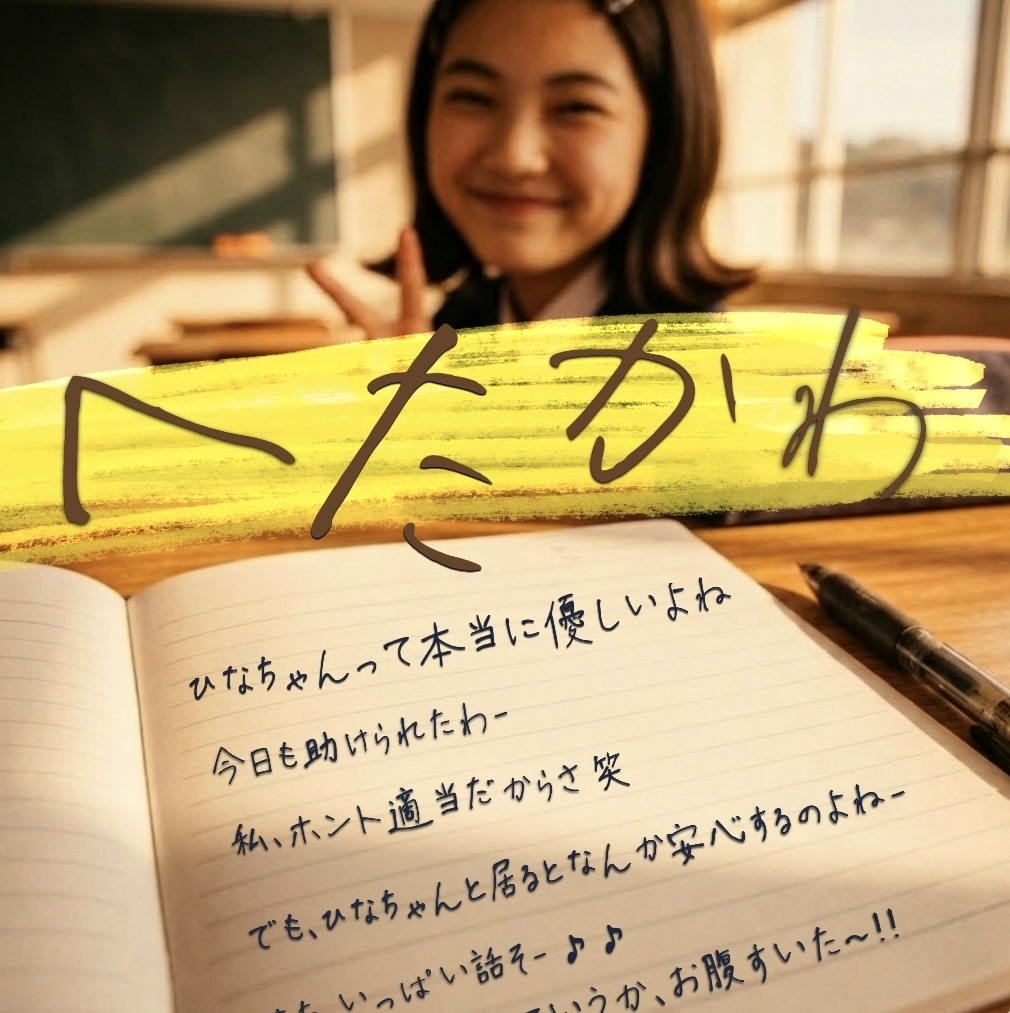 へたかわ
ひなちゃんって本当に優しいよね
今日も助けられたわー
私、ホント適当だからさ笑
でも、ひなちゃんと居るとなんか安心するのよねー
いっぱい話そー♪♪
ていうか、お腹すいた〜!!